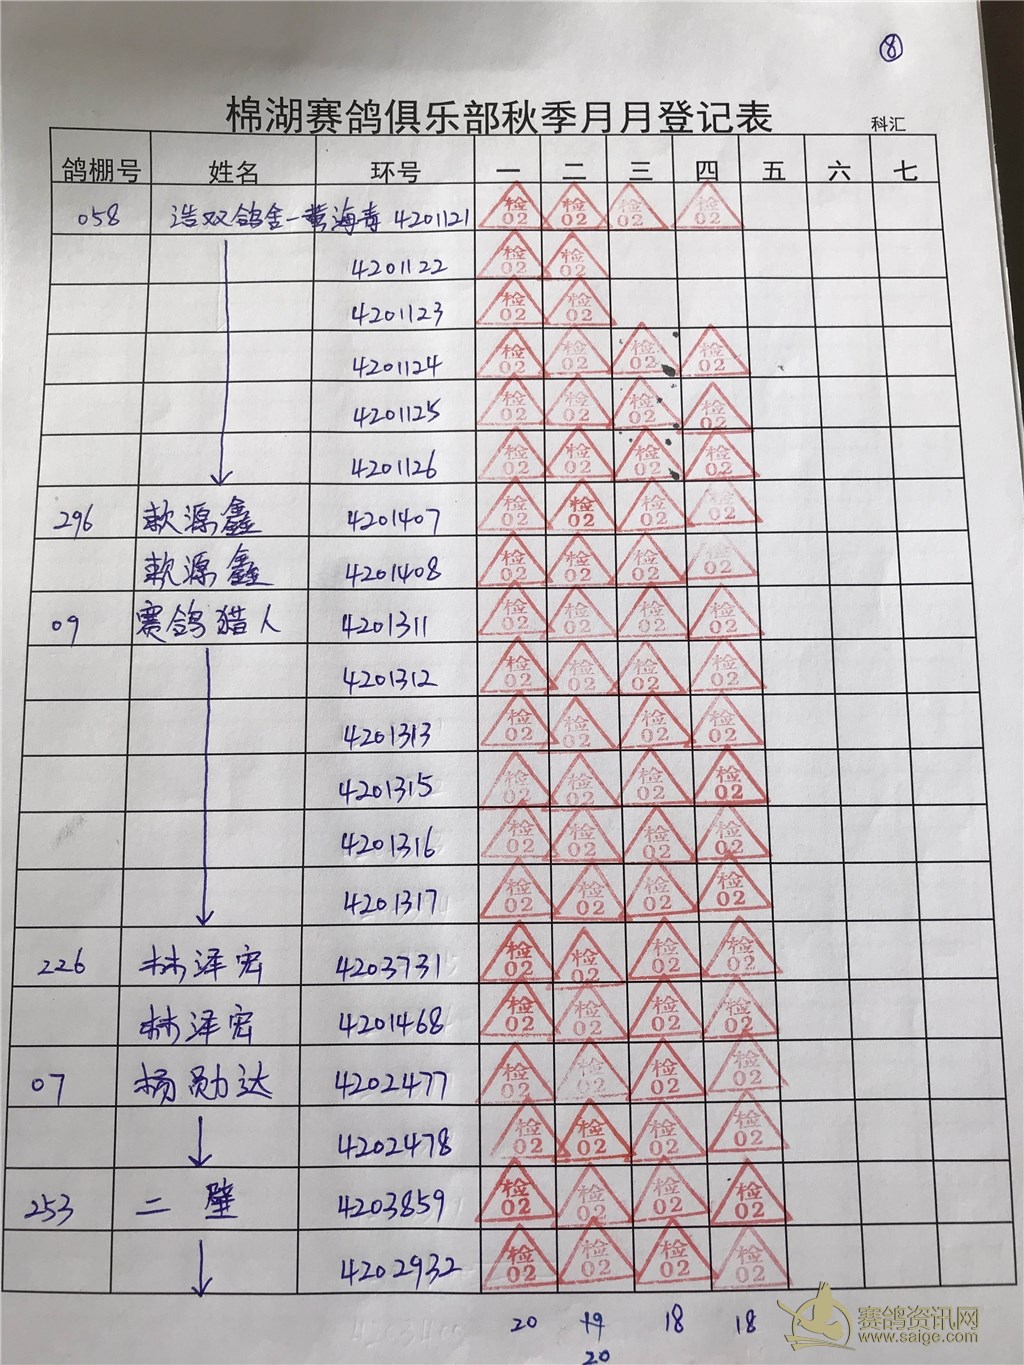 ⑧
棉湖赛鸽俱乐部秋季月月登记表 科汇
鸽棚号 姓名 环号 一 二 三 四 五 六 七
058 造双鸽舍-黄海青 4201121 检02 检02 检02 检02
4201122 检02 检02
4201123 检02 检02
4201124 检02 检02 检02 检02
4201125 检02 检02 检02 检02
4201126 检02 检02 检02 检02
296 歀源鑫 4201407 检02 检02 检02 检02
歀源鑫 4201408 检02 检02 检02 检02
09 赛鸽猎人 4201311 检02 检02 检02 检02
4201312 检02 检02 检02 检02
4201313 检02 检02 检02 检02
4201315 检02 检02 检02 检02
4201316 检02 检02 检02 检02
4201317 检02 检02 检02 检02
226 林泽宏 4203731 检02 检02 检02 检02
林泽宏 4201468 检02 检02 检02 检02
07 杨勋达 4202477 检02 检02 检02 检02
4202478 检02 检02 检02 检02
253 二 壁 4203859 检02 检02 检02 检02
4202932 检02 检02 检02 检02
20 19 18 18
20
赛鸽资讯网
www.saige.com